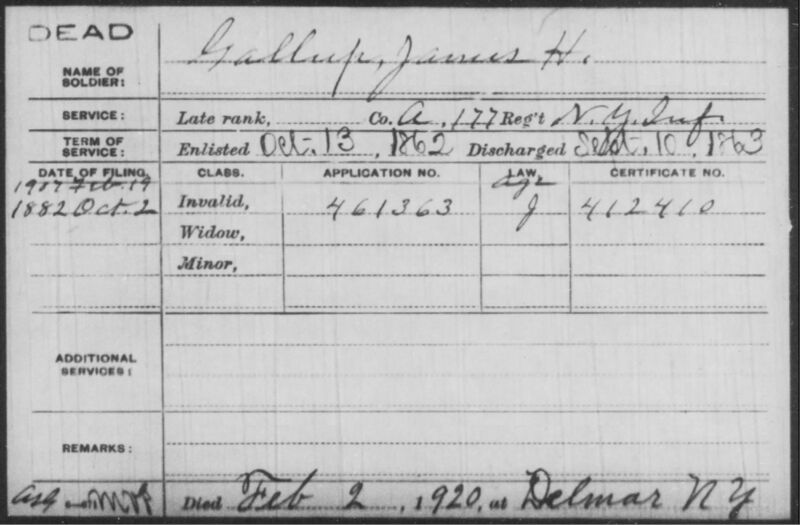 DEAD
NAME OF SOLDIER: Gallup, James H.
SERVICE: Late rank, Co. A, 177 Reg't N.Y. Inf.
TERM OF SERVICE: Enlisted Oct. 13, 1862 Discharged Sept. 10, 1863
DATE OF FILING. CLASS. APPLICATION NO. LAW. CERTIFICATE NO.
1907 Feb. 19 age
1882 Oct. 2 Invalid, 461363 J 412410
Widow,
Minor,
ADDITIONAL SERVICES:
REMARKS:
Died Feb 2, 1920, at Delmar NY